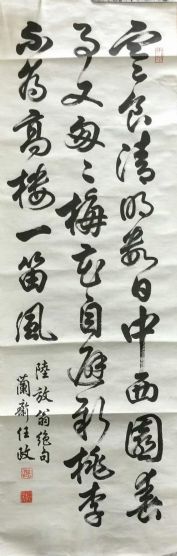 寒食清明數日中西園春
事又匆〻梅花自避新桃李
不為高樓一笛風
陸放翁絕句
蘭齋任政